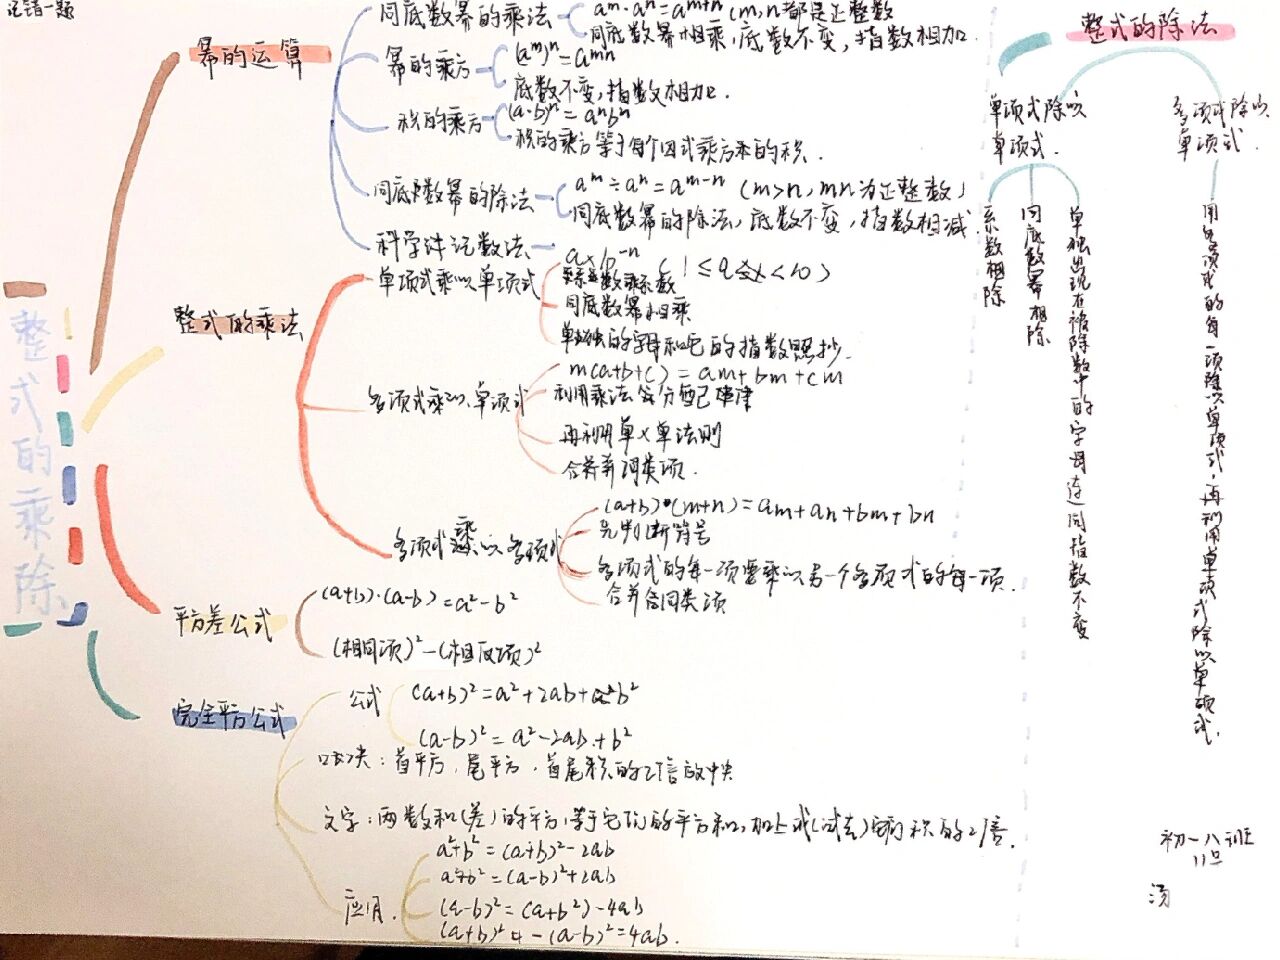 记错一题
整式的乘除
幂的运算
同底数幂的乘法
aᵐ·aⁿ=aᵐ⁺ⁿ (m,n都是正整数
同底数幂相乘,底数不变,指数相加.
幂的乘方
(aᵐ)ⁿ=aᵐⁿ
底数不变,指数相加.
积的乘方
(a·b)ⁿ=aⁿbⁿ
积的乘方等于每个因式乘方本的积.
同底数幂的除法
aᵐ÷aⁿ=aᵐ⁻ⁿ (m>n,mn为正整数)
同底数幂的除法,底数不变,指数相减.
科学计记数法
a×10⁻ⁿ
整式的乘法
单项式乘以单项式
同底数幂相乘
单独的字母和它的指数照抄.
多项式乘以单项式
m(a+b+c)=am+bm+cm
利用乘法分配律
再利用单×单法则
合并同类项.
多项式乘以多项式
(a+b)•(m+n)=am+an+bm+bn
先判断符号
多项式的每一项要乘以另一个多项式的每一项.
合并同类项
平方差公式
(a+b)·(a-b)=a²-b²
(相同项)²-(相反项)²
完全平方公式
公式
(a+b)²=a²+2ab+b²
(a-b)²=a²-2ab+b²
口诀:首平方,尾平方,首尾积的2倍放中央
文字:两数和(差)的平方,等于它们的平方和,加上或(减去)它们积的2倍.
应用.
a²+b²=(a+b)²-2ab
a²+b²=(a-b)²+2ab
(a-b)²=(a+b²)-4ab
(a+b)²-(a-b)²=4ab.
整式的除法
单项式除以
单项式.
系数相除
同底数幂相除
单独出现在被除数中的字母连同指数不变
多项式除以
单项式.
用多项式的每一项除以单项式,再利用单项式除以单项式.
初一八班
11号
汤